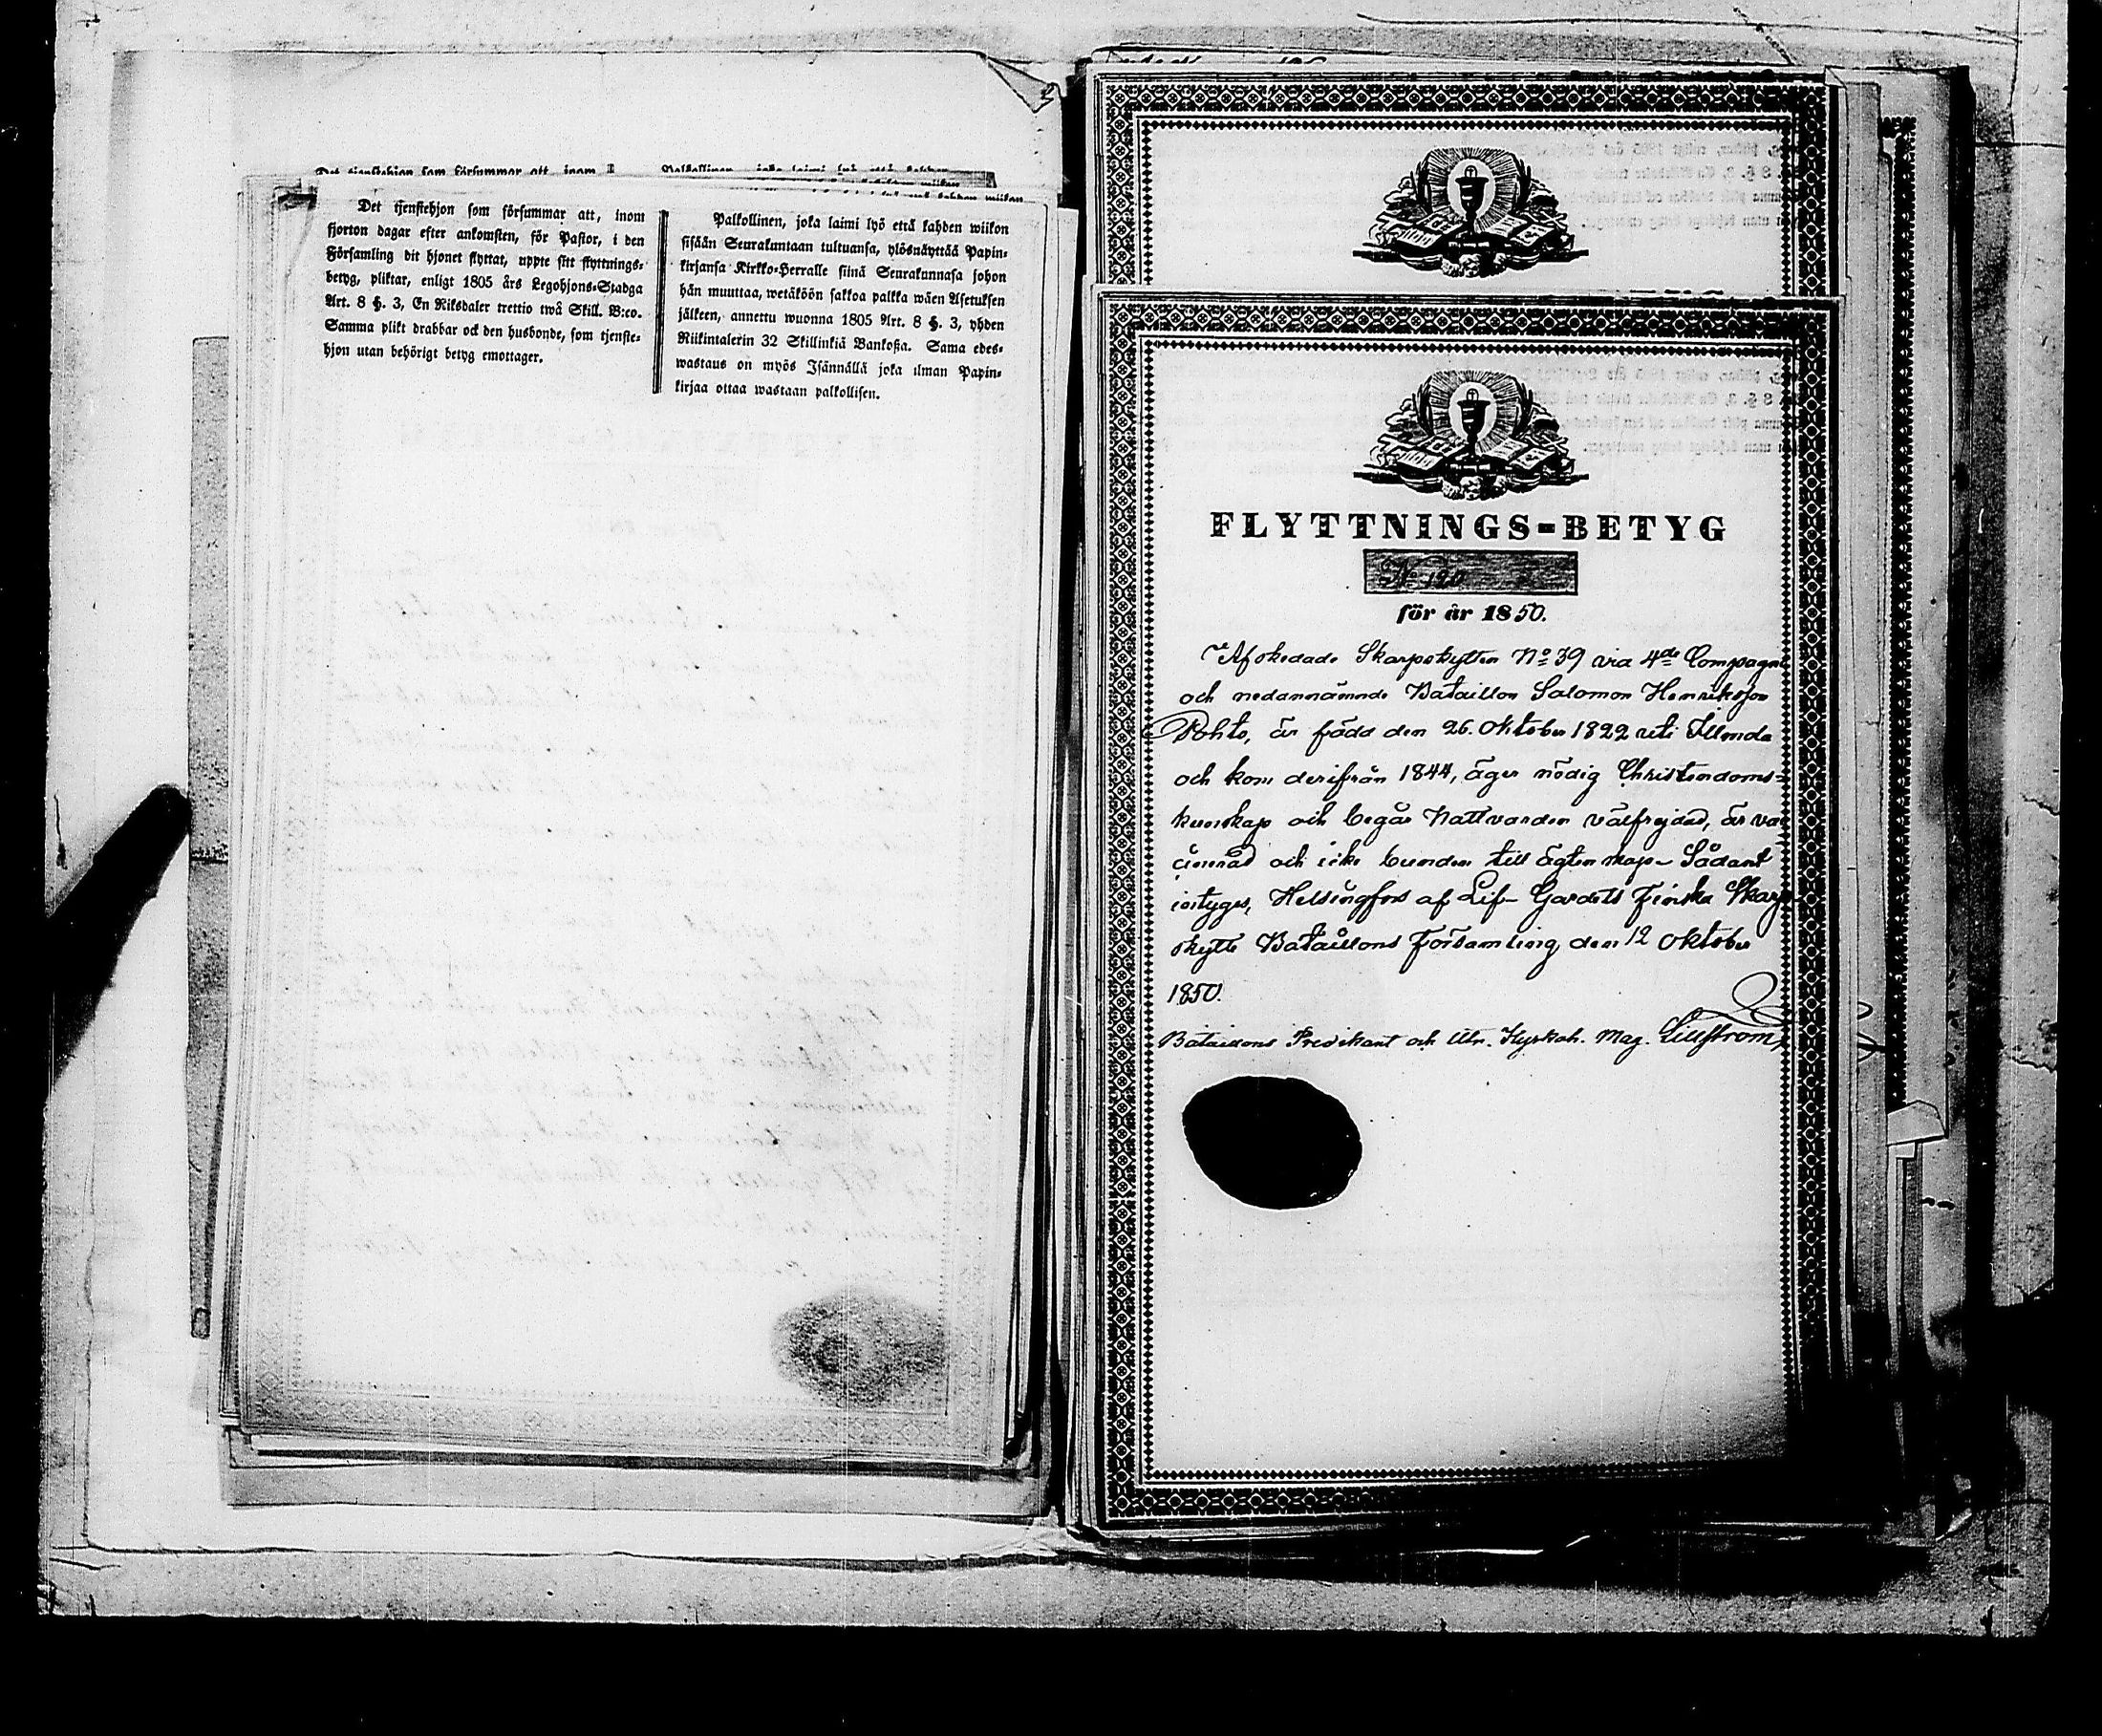 Det tjenstehjon som försummar att, inom
fjorton dagar efter ankomsten, för Pastor, i den
Församling dit hjonet flyttat, uppte sitt flyttnings-
betyg, pliktar, enligt 1805 års Legohjons-Stadga
Art. 8 §. 3, En Riksdaler trettio twå Skill. B:co.
Samma plikt drabbar ock den husbonde, som tjenste-
hjon utan behörigt betyg emottager.
Palkollinen, joka laimi lyö että kahden wiikon
sisään Seurakuntaan tultuansa, ylösnäyttää Papin-
kirjansa Kirkko-Herralle siinä Seurakunnasa johon
hän muuttaa, wetäköön sakkoa palkka wäen Asetuksen
jälkeen, annettu wuonna 1805 Art. 8 §. 3, yhden
Riikintalerin 32 Skillinkiä Bankosa. Sama edes-
wastaus on myös Isännällä joka ilman Papin-
kirjaa ottaa wastaan palkollisen.
FLYTTNINGS-BETYG
No 120
för år 1850.
Afskedade Skarpskytten No 39 vid 4de Compagni
och nedannämnde Bataillon Salomon Henriksson
Pohto, är född den 26. Oktober 1822 uti Ilmola
och kom derifrån 1844, äger nödig Christendoms-
kunskap och begår Nattvarden välfrejdad, är vac
cinerad och icke bunden till ägtenskap - Sådant
intygas, Helsingfors af Lif- Gardets Finska Skarp-
skytte Bataillons Församling, den 12 Oktober
1850.
Bataillons Predikant och Utn. Kyrkoh. Mag. Lillström,